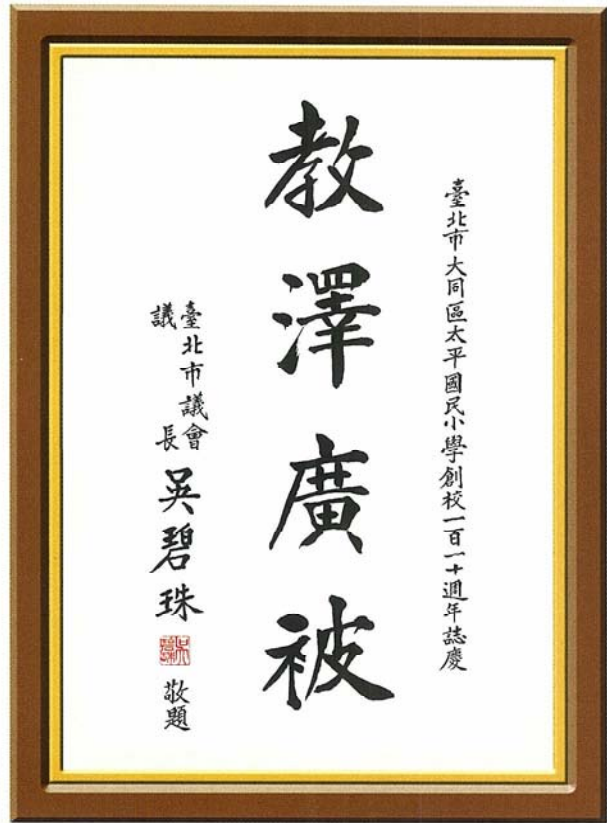 臺北市大同區太平國民小學創校一百一十週年誌慶
教澤廣被
臺北市議會
議長吳碧珠
敬題